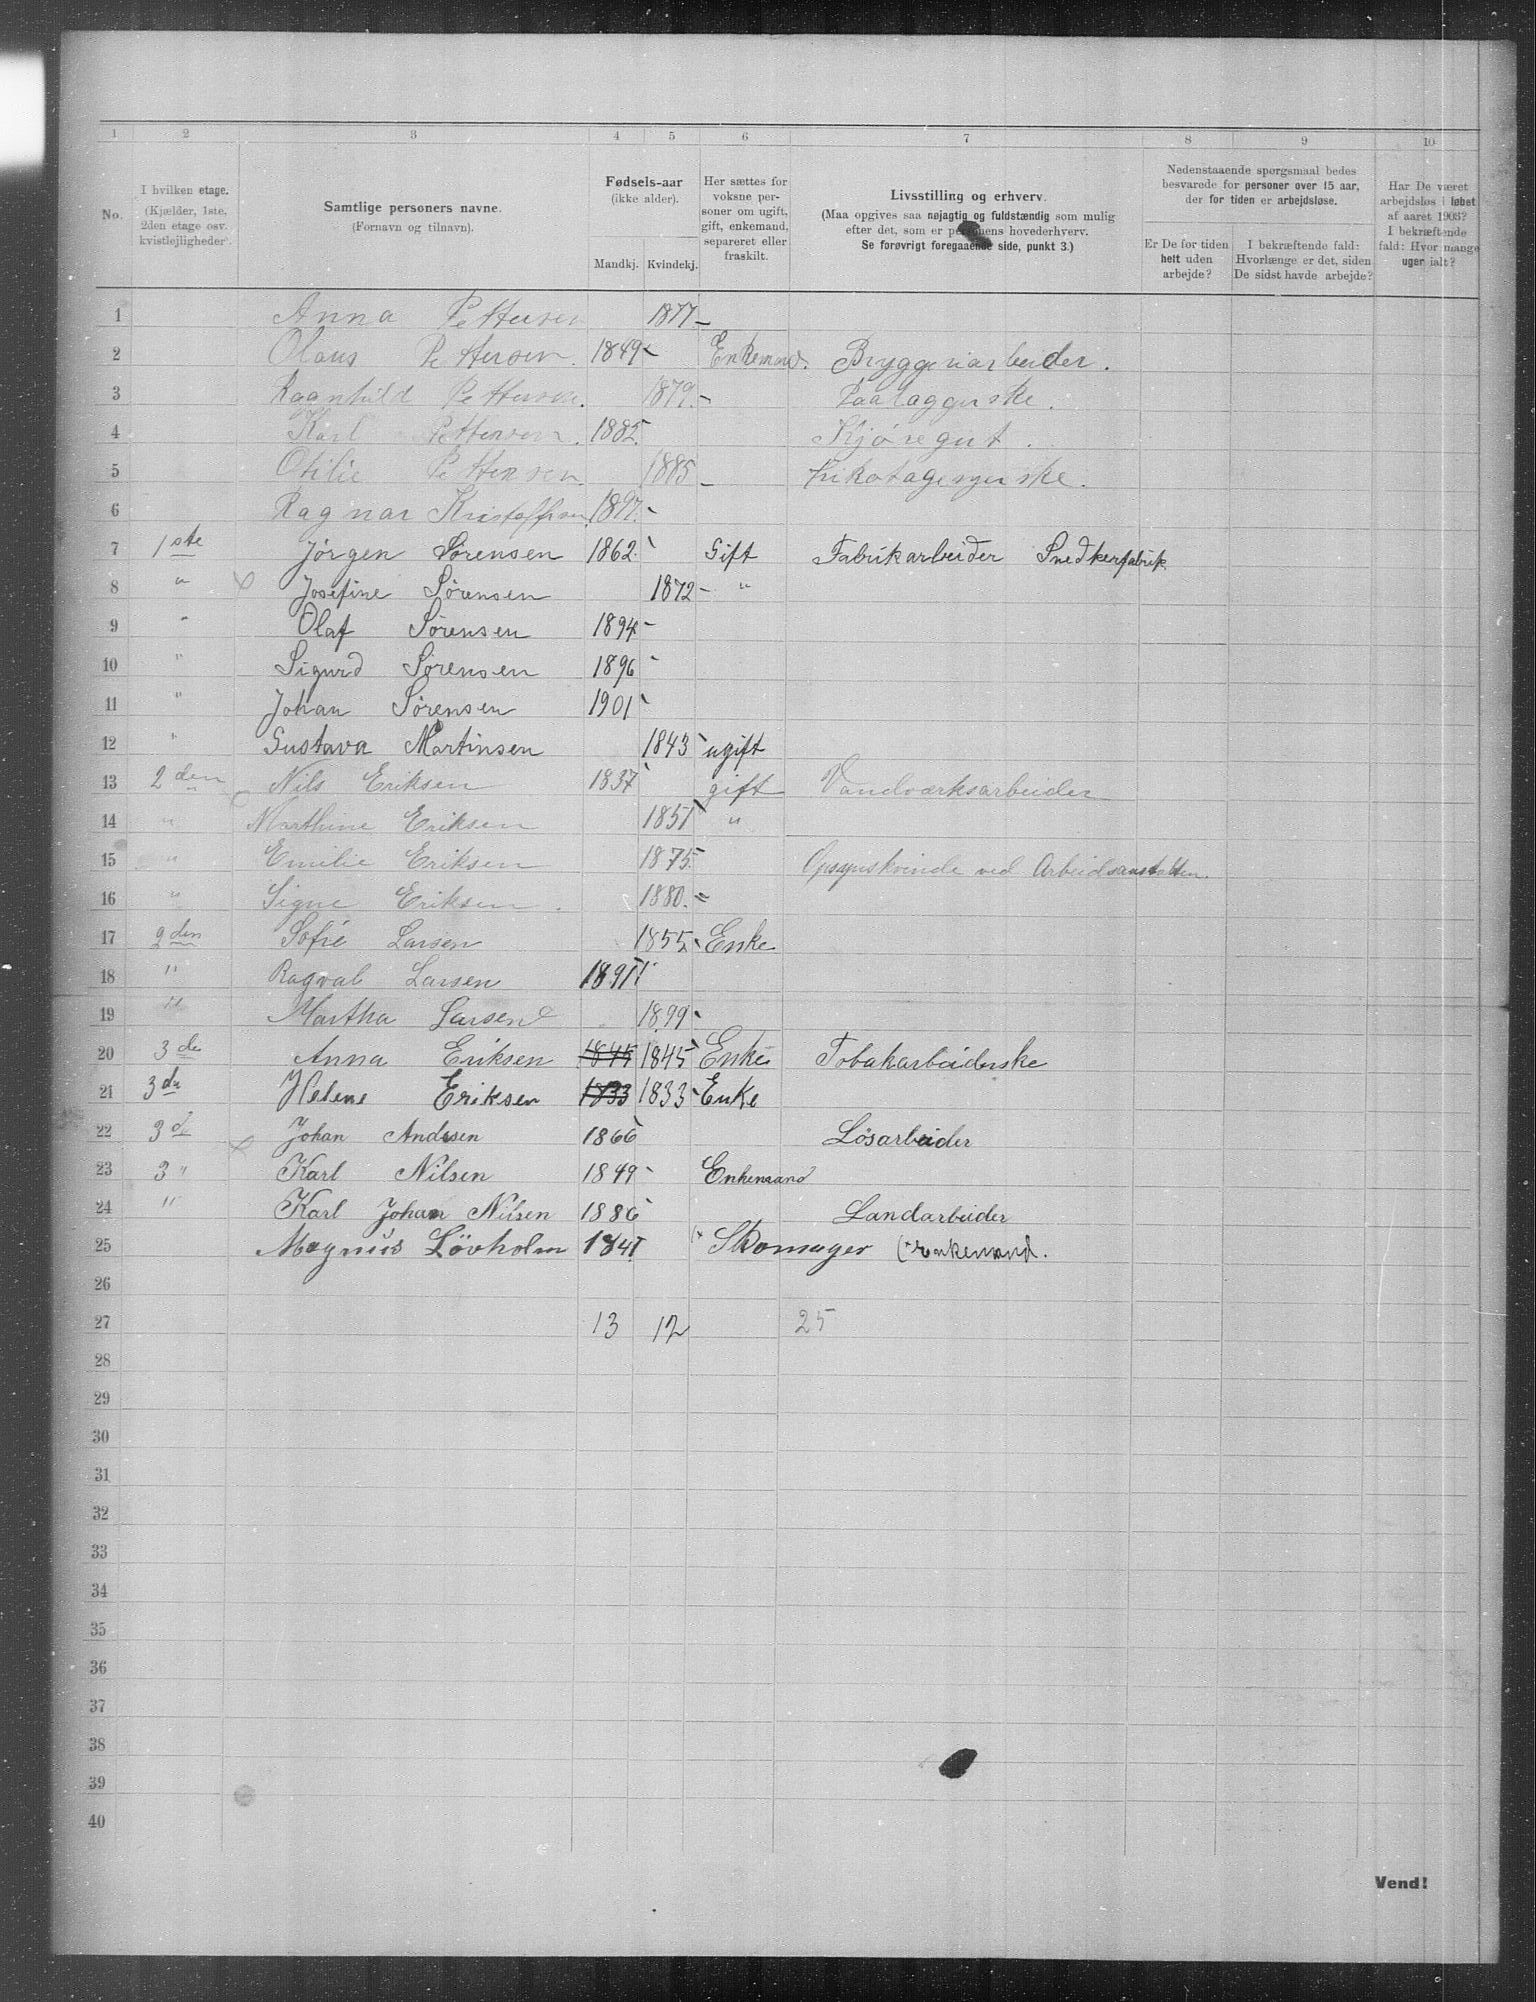 1 2 3 4 5 6 7 8 9 10
No.
I hvilken etage.
(Kjælder, 1ste,
2den etage osv.
kvistlejligheder).
Samtlige personers navne.
(Fornavn og tilnavn).
Fødsels-aar
(ikke alder).
Mandkj. Kvindekj.
Her sættes for
voksne per-
soner om ugift,
gift, enkemand,
separeret eller
fraskilt.
Livsstilling og erhverv.
(Maa opgives saa nøjagtig og fuldstændig som mulig
efter det, som er personens hovederhverv.
Se forøvrigt foregaaende side, punkt 3.)
Nedenstaaende spørgsmaal bedes
besvarede for personer over 15 aar,
der for tiden er arbejdsløse.
Er De for tiden
helt uden
arbejde?
I bekræftende fald:
Hvorlænge er det, siden
De sidst havde arbejde?
Har De været
arbejdsløs i løbet
af aaret 1903?
I bekræftende
fald: Hvor mange
uger ialt?
1 Anna Pettersen 1877 -
2 Olaus Pettersen. 1849 - Enkemand. Bryggeriarbeider.
3 Ragnhild Pettersen. 1879. - Paalæggerske.
4 Karl Pettersen. 1882. Kjøregut.
5 Otilie Pettersen. 1885 - Trikotagesyerske.
6 Ragnar Kristoffersen 1897. -
7 1ste Jörgen Sørensen 1862. Gift Fabrikarbeider Snedkerfabrik
8 " Josefine Sørensen 1872 - "
9 " Olaf Sørensen 1894 -
10 " Sigurd Sørensen 1896
11 " Johan Sørensen 1901
12 " Gustava Martinsen 1843 ugift
13 2den Nils Eriksen 1837 gift Vandværksarbeider
14 " Marthine Eriksen 1851 "
15 " Emilie Eriksen 1875. Opsynskvinde ved Arbeidsanstalten.
16 " Signe Eriksen. 1880. =
17 2den Sofie Larsen 1855 Enke
18 " Ragval Larsen 1891
19 " Martha Larsen 1899
20 3de Anna Eriksen 1845 1845 Enke Tobakarbeiderske
21 3de Helene Eriksen 1833 1833 Enke
22 3d Johan Andersen 1866 Løsarbeider
23 3 " Karl Nilsen 1849 - Enkemand
24 " Karl Johan Nilsen 1886 Landarbeider
25 Magnus Lövholm 1841 Skomager (* enkemand.
26
27 13 12 25
28
29
30
31
32
33
34
35
36
37
38
39
40
Vend!